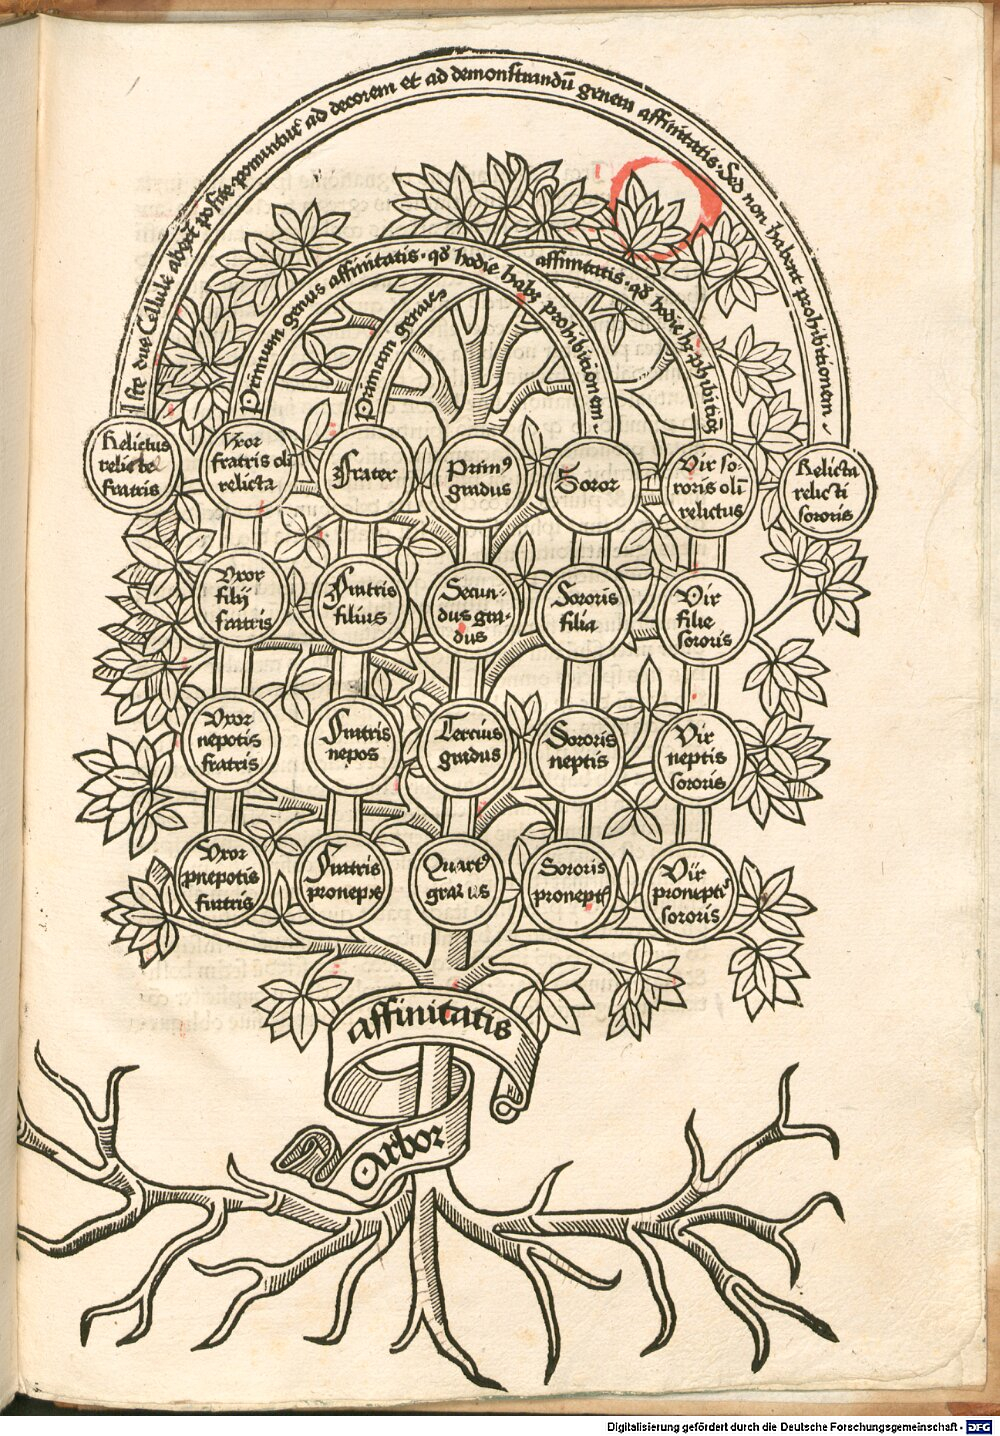 Iste due Cellule aborẽ posite ponuntur ad decorem et ad demonstrandũ genera affinitatis. Sed non habent prohibitionem
Primum genus affinitatis. qď hodie habꝫ prohibitionem
Primum genus affinitatis. qď hodie hꝫ ꝓhibitio
Relictus
relicte
fratris
Vxor
fratris oli
relicta
Frater
Primꝰ
gradus
Soror
Vir so:
roris oli
relictus
Relicta
relicti
sororis
Vxor
filij
fratris
Fratris
filius
Secun-
dus gra-
dus
Sororis
filia
Vir
filie
sororis
Vxor
nepotis
fratris
Fratris
nepos
Tercius
gradus
Sororis
neptis
Vir
neptis
sororis
Vxor
ꝓnepotis
fratris
Fratris
pronepos
Quartꝰ
gradus
Sororis
proneptꝭ
Vir
proneptꝭ
sororis
affinitatis
Arbor
Digitalisierung gefördert durch die Deutsche Forschungsgemeinschaft - DFG